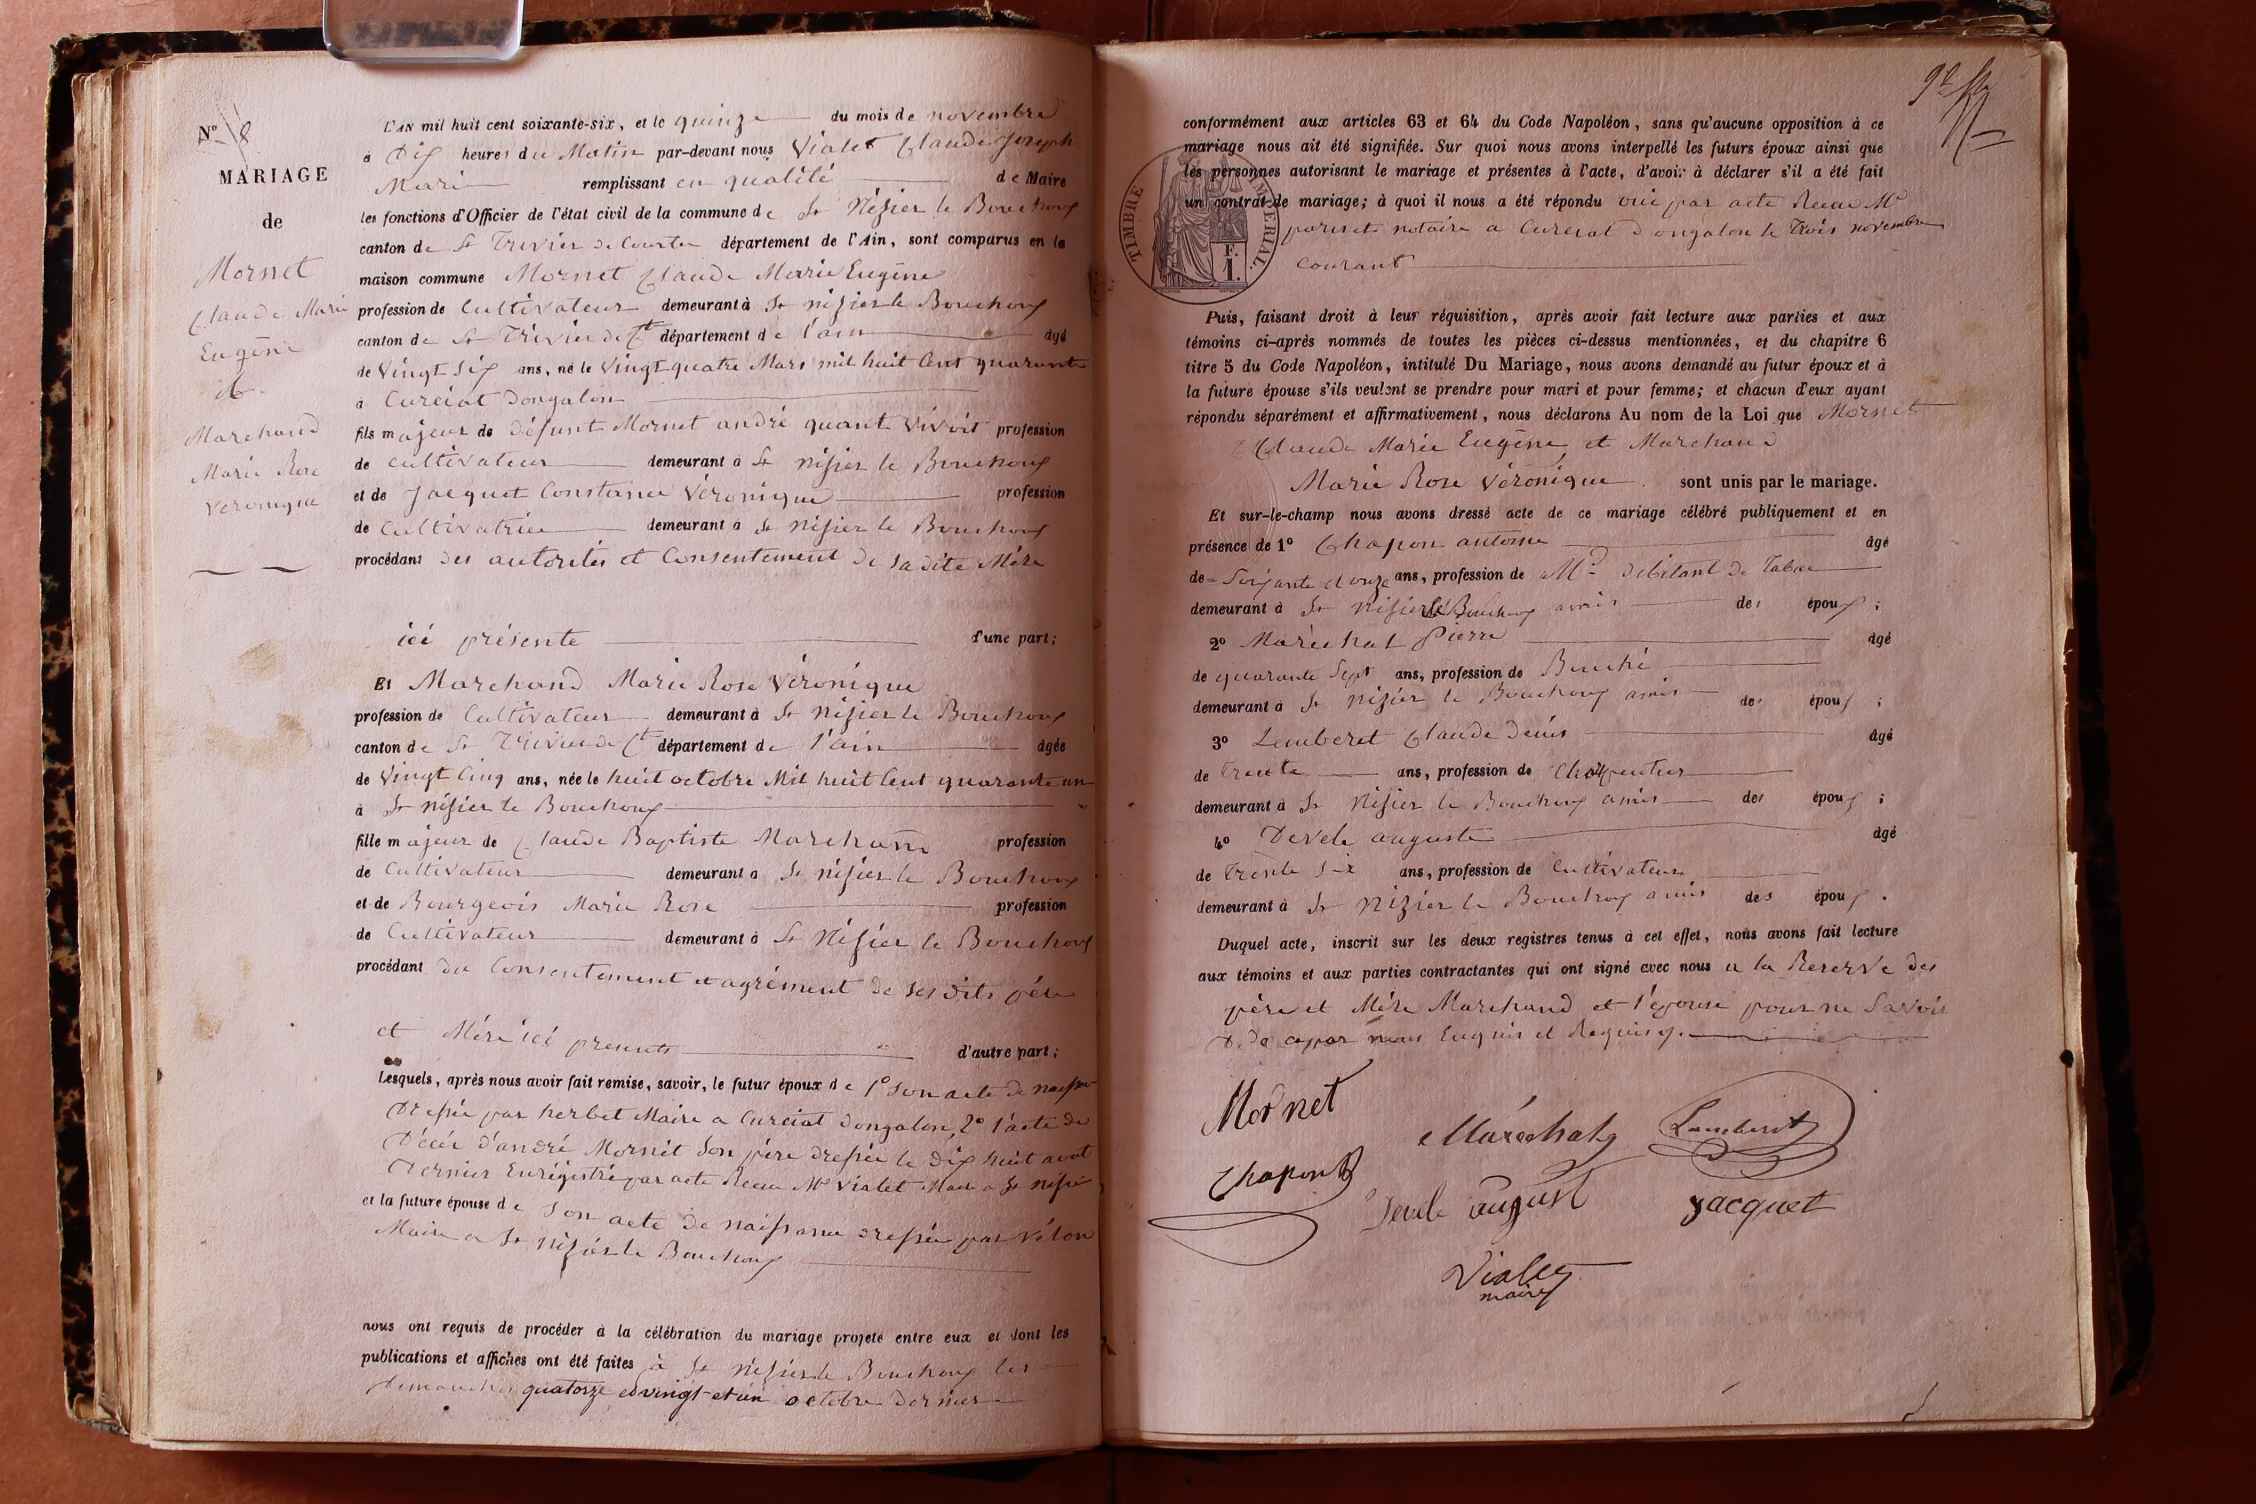 N° 18
MARIAGE
de
Mornet
Claude Marie
Eugène
&
Marchand
Marie Rose
Veronique
L'AN mil huit cent soixante-six, et le quinze du mois de novembre
à Dix heures du Matin par-devant nous Vialet Claude Joseph
Marie remplissant en qualité de Maire
les fonctions d'Officier de l'état civil de la commune de St Nisier le Bouchoux
canton de St Trivier de Courtes département de l'Ain, sont comparus en la
maison commune Mornet Claude Marie Eugène
profession de Cultivateur demeurant à St nisier le Bouchoux
canton de St Trivier de Ct département de l'ain âgé
de Vingt Six ans, né le Vingt quatre Mars mil huit Cent quarante
à Curciat Dongalon
fils majeur de Défunt Mornet andré quant Vivoit profession
de cultivateur demeurant à St nisier le Bouchoux
et de Jacquet Constance Véronique profession
de Cultivatrice demeurant à St nisier le Bouchoux
procédant des autorités et Consentement de sa dite Mére
ici présente d'une part;
Et Marchand Marie Rose Véronique
profession de Cultivateur demeurant à St nisier le Bouchoux
canton de St Trivier de Ct département de l'ain âgée
de Vingt Cinq ans, née le huit octobre Mil huit Cent quarante un
à St nisier le Bouchoux
fille majeur de Claude Baptiste Marchand profession
de Cultivateur demeurant à St nisier le Bouchoux
et de Bourgeois Marie Rose profession
de Cultivateur demeurant à St Nisier le Bouchoux
procédant du Consentement et agrément de ses dits père
et Mére ici presents d'autre part;
Lesquels, après nous avoir fait remise, savoir, le futur époux de 1° Son acte de naissance
Dressée par herbet Maire a Curciat dongalon, 2° l'acte de
Décée d'andré Mornet Son père dressée le Dix huit avril
Dernier Enrégistré par acte Recu Me Vialet Maire a St nisier
et la future épouse de Son acte de naissance dressée par Vélon
Maire a St nisier le Bouchoux
nous ont requis de procéder à la célébration du mariage projeté entre eux et dont les
publications et affiches ont été faites à St nisier le Bouchoux les
dimanches quatorze et vingt-et-un octobre dernier
conformément aux articles 63 et 64 du Code Napoléon, sans qu'aucune opposition à ce
mariage nous ait été signifiée. Sur quoi nous avons interpellé les futurs époux ainsi que
les personnes autorisant le mariage et présentes à l'acte, d'avoir à déclarer s'il a été fait
un contrat de mariage; à quoi il nous a été répondu oui par acte Recu Me
notaire a Curciat Dongalon le Trois novembre
courant
TIMBRE IMPERIAL
F.
1.
Puis, faisant droit à leur réquisition, après avoir fait lecture aux parties et aux
témoins ci-après nommés de toutes les pièces ci-dessus mentionnées, et du chapitre 6
titre 5 du Code Napoléon, intitulé Du Mariage, nous avons demandé au futur époux et à
la future épouse s'ils veulent se prendre pour mari et pour femme; et chacun d'eux ayant
répondu séparément et affirmativement, nous déclarons Au nom de la Loi que Mornet
Claude Marie Eugène et Marchand
Marie Rose Véronique sont unis par le mariage.
Et sur-le-champ nous avons dressé acte de ce mariage célébré publiquement et en
présence de 1° Chapon antoine âgé
de Soixante douze ans, profession de Md debitant de Tabac
demeurant à St nisier le Bouchoux amis des époux;
2° Maréchal Pierre âgé
de quarante Sept ans, profession de Bouché
demeurant à St nizier le Bouchoux amis des époux;
3° Lemberet Claude Denis âgé
de Trente ans, profession de Charpentier
demeurant à St nisier le Bouchoux amis des époux;
4° Devele auguste âgé
de Trente Six ans, profession de Cultivateur
demeurant à St nizier le Bouchoux amis des époux.
Duquel acte, inscrit sur les deux registres tenus à cet effet, nous avons fait lecture
aux témoins et aux parties contractantes qui ont signé avec nous a la Reserve des
père et Mére Marchand et l'épouse pour ne Savoir
De ce par nous Enquis et Requis
Mornet
Maréchal
Lemberet
Chapon
Devele august
Jacquet
Vialet
maire